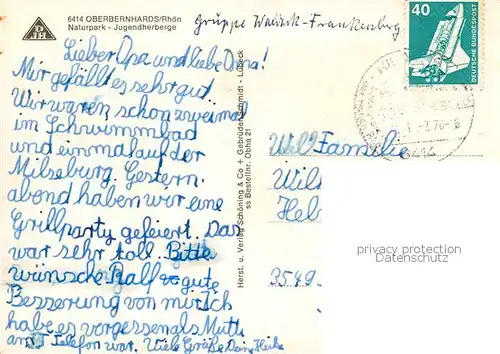 6414 OBERBERNHARDS/Rhön
Naturpark - Jugendherberge
DJH
Gruppe Waldeck-Frankenberg
40
DEUTSCHE BUNDESPOST
6414
Lieber Opa und liebe Oma!
Mir gefällt es sehr gut.
Wir waren schon zweimal
im Schwimmbad
und einmal auf der
Milseburg. Gestern
abend haben wir eine
Grillparty gefeiert. Das
war sehr toll. Bitte
wünsche Ralf gute
Besserung von mir. Ich
habe es vergessen als Mutti
am Telefon war. Viele Grüße Deine Heike
Herst. u. Verlag Schöning & Co + Gebrüder Schmidt - Lübeck
ss Bestellnr. Obha 21
Familie
Wil
Hel
3549
privacy protection
Datenschutz